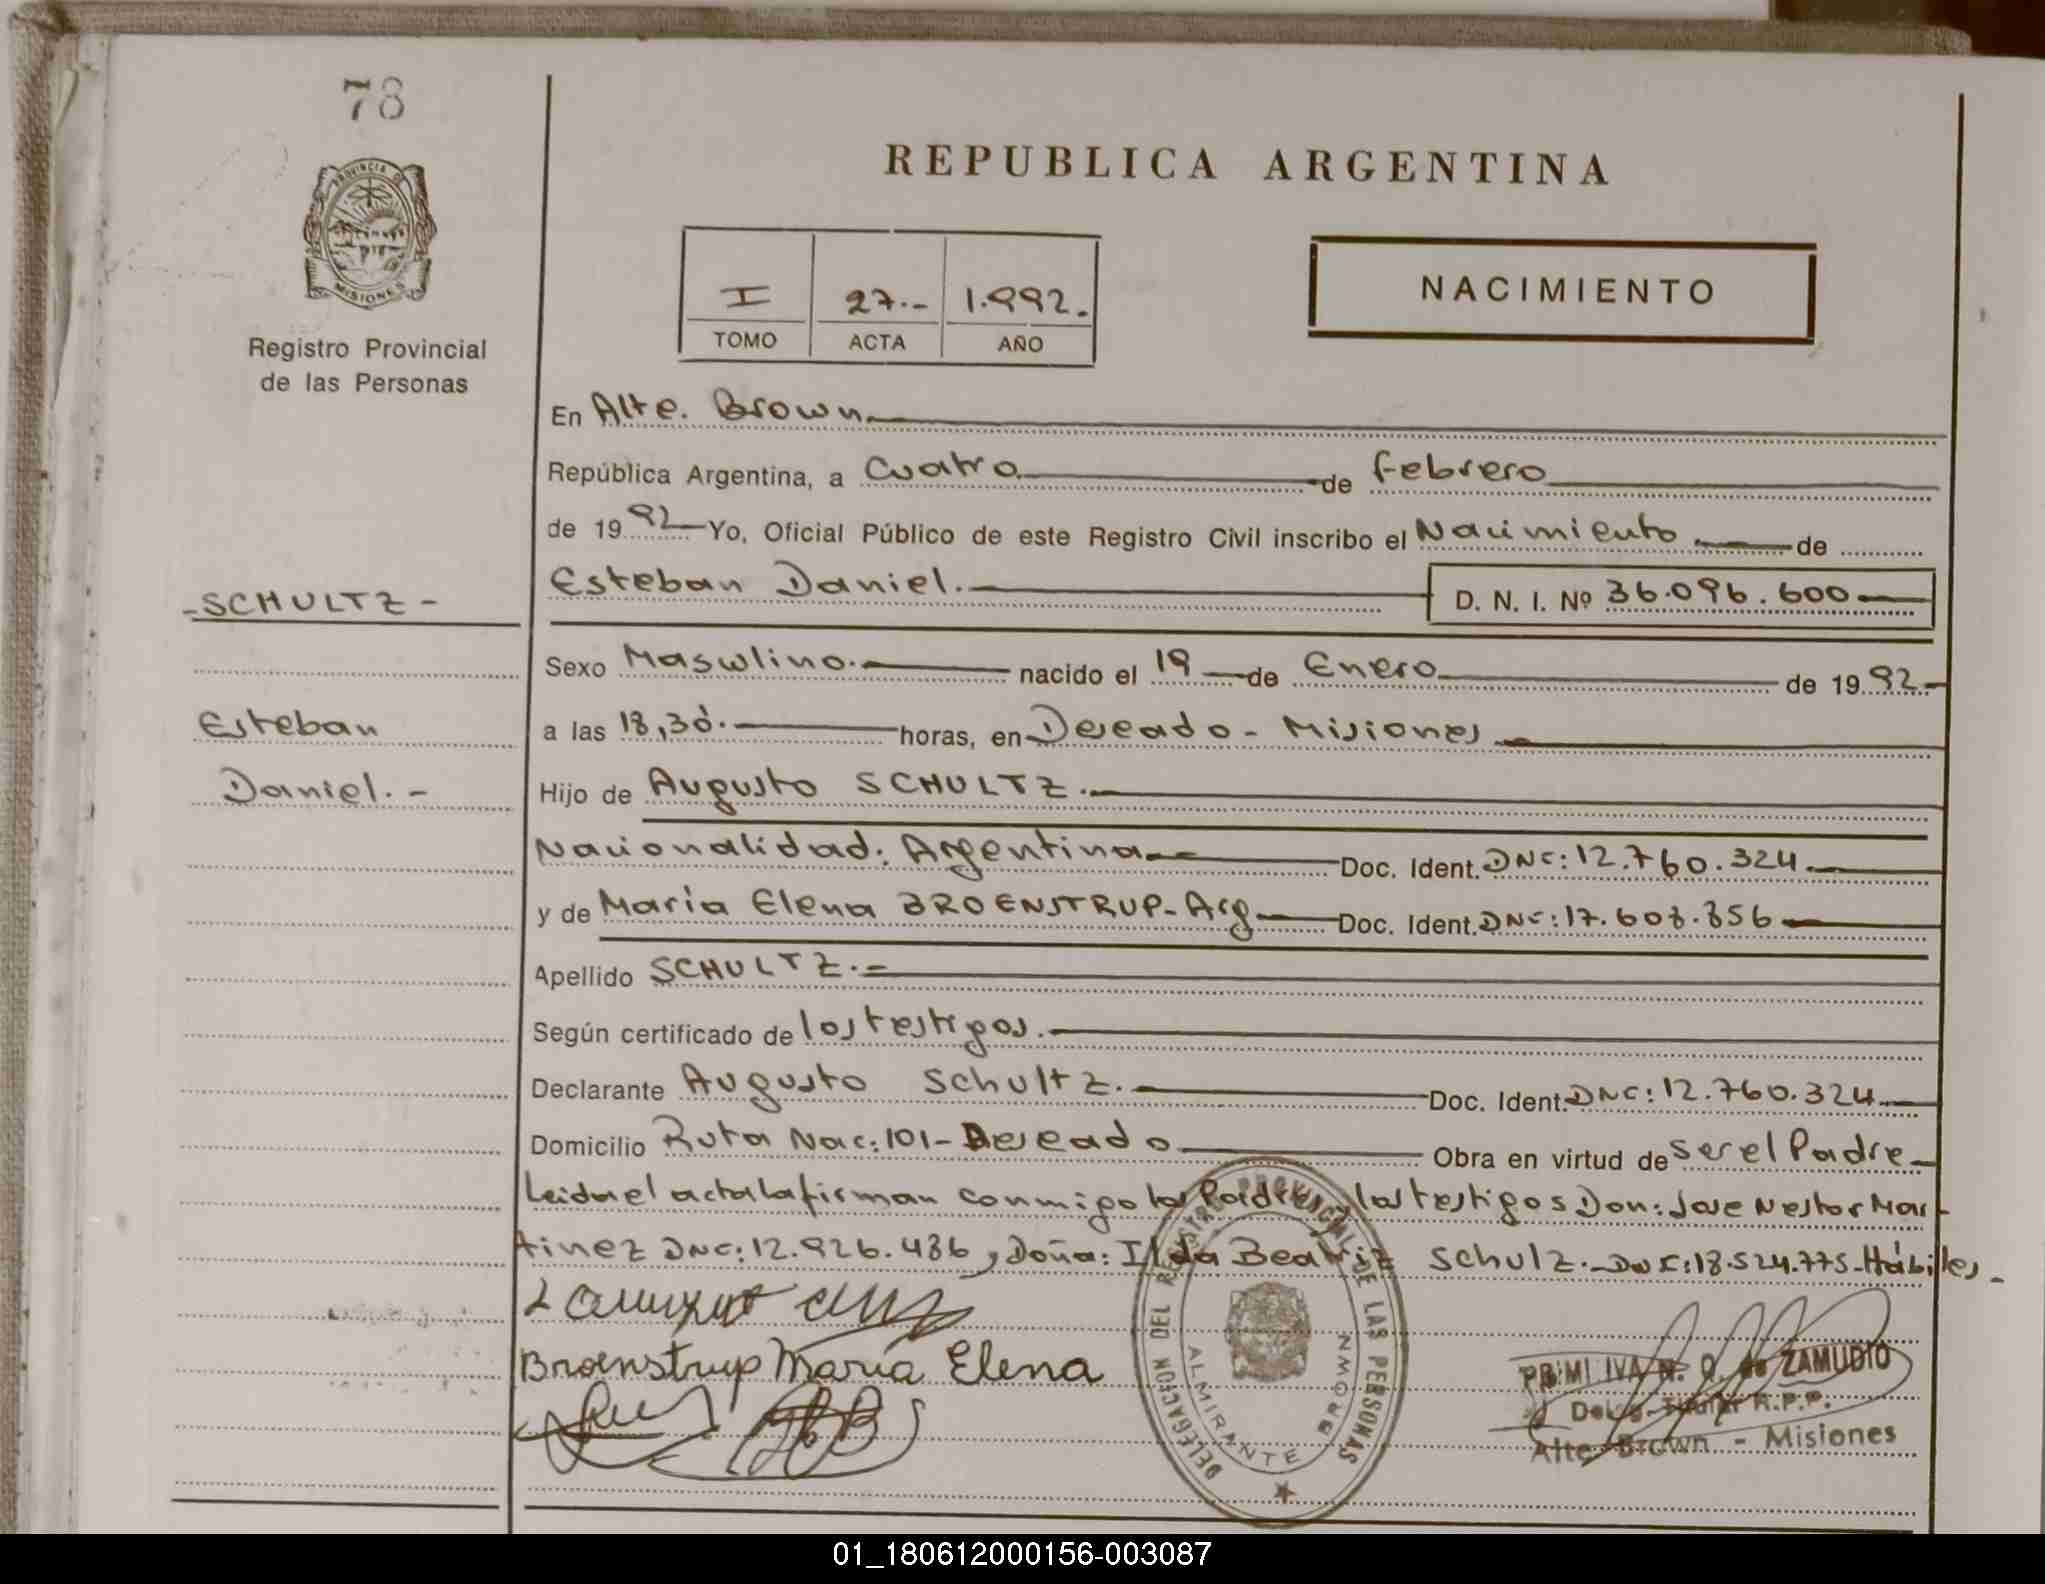 78
PROVINCIA DE
MISIONES
Registro Provincial
de las Personas
REPUBLICA ARGENTINA
I 27.- 1.992.
TOMO ACTA AÑO
NACIMIENTO
En Alte. Brown.
República Argentina, a Cuatro de Febrero
de 19 92 Yo, Oficial Público de este Registro Civil inscribo el Nacimiento de
-SCHULTZ-
Esteban Daniel. D. N. I. Nº 36.096.600
Sexo Masculino. nacido el 19 de Enero de 19 92
Esteban
a las 18,30. horas, en Deseado - Misiones
Daniel. -
Hijo de Augusto SCHULTZ.
Nacionalidad: Argentina Doc. Ident. DNI: 12.760.324
y de Maria Elena BROENSTRUP- Arg Doc. Ident. DNI: 17.608.856
Apellido SCHULTZ. -
Según certificado de los testigos.
Declarante Augusto Schultz. Doc. Ident. DNI: 12.760.324
Domicilio Ruta Nac: 101- Deseado Obra en virtud de ser el Padre
Leida el acta la firman conmigo los Padres y los testigos Don: Jose Nestor Mar-
tinez DNI: 12.926.486 y Doña: Ilda Beatriz Schulz.- DNI: 18.524.775- Hábiles-
Broenstrup Maria Elena
DELEGACION DEL REGISTRO PROVINCIAL DE LAS PERSONAS
ALMIRANTE BROWN
PRIMITIVA N. O. de ZAMUDIO
Deleg. Titular R.P.P.
Alte. Brown - Misiones
01_180612000156-003087